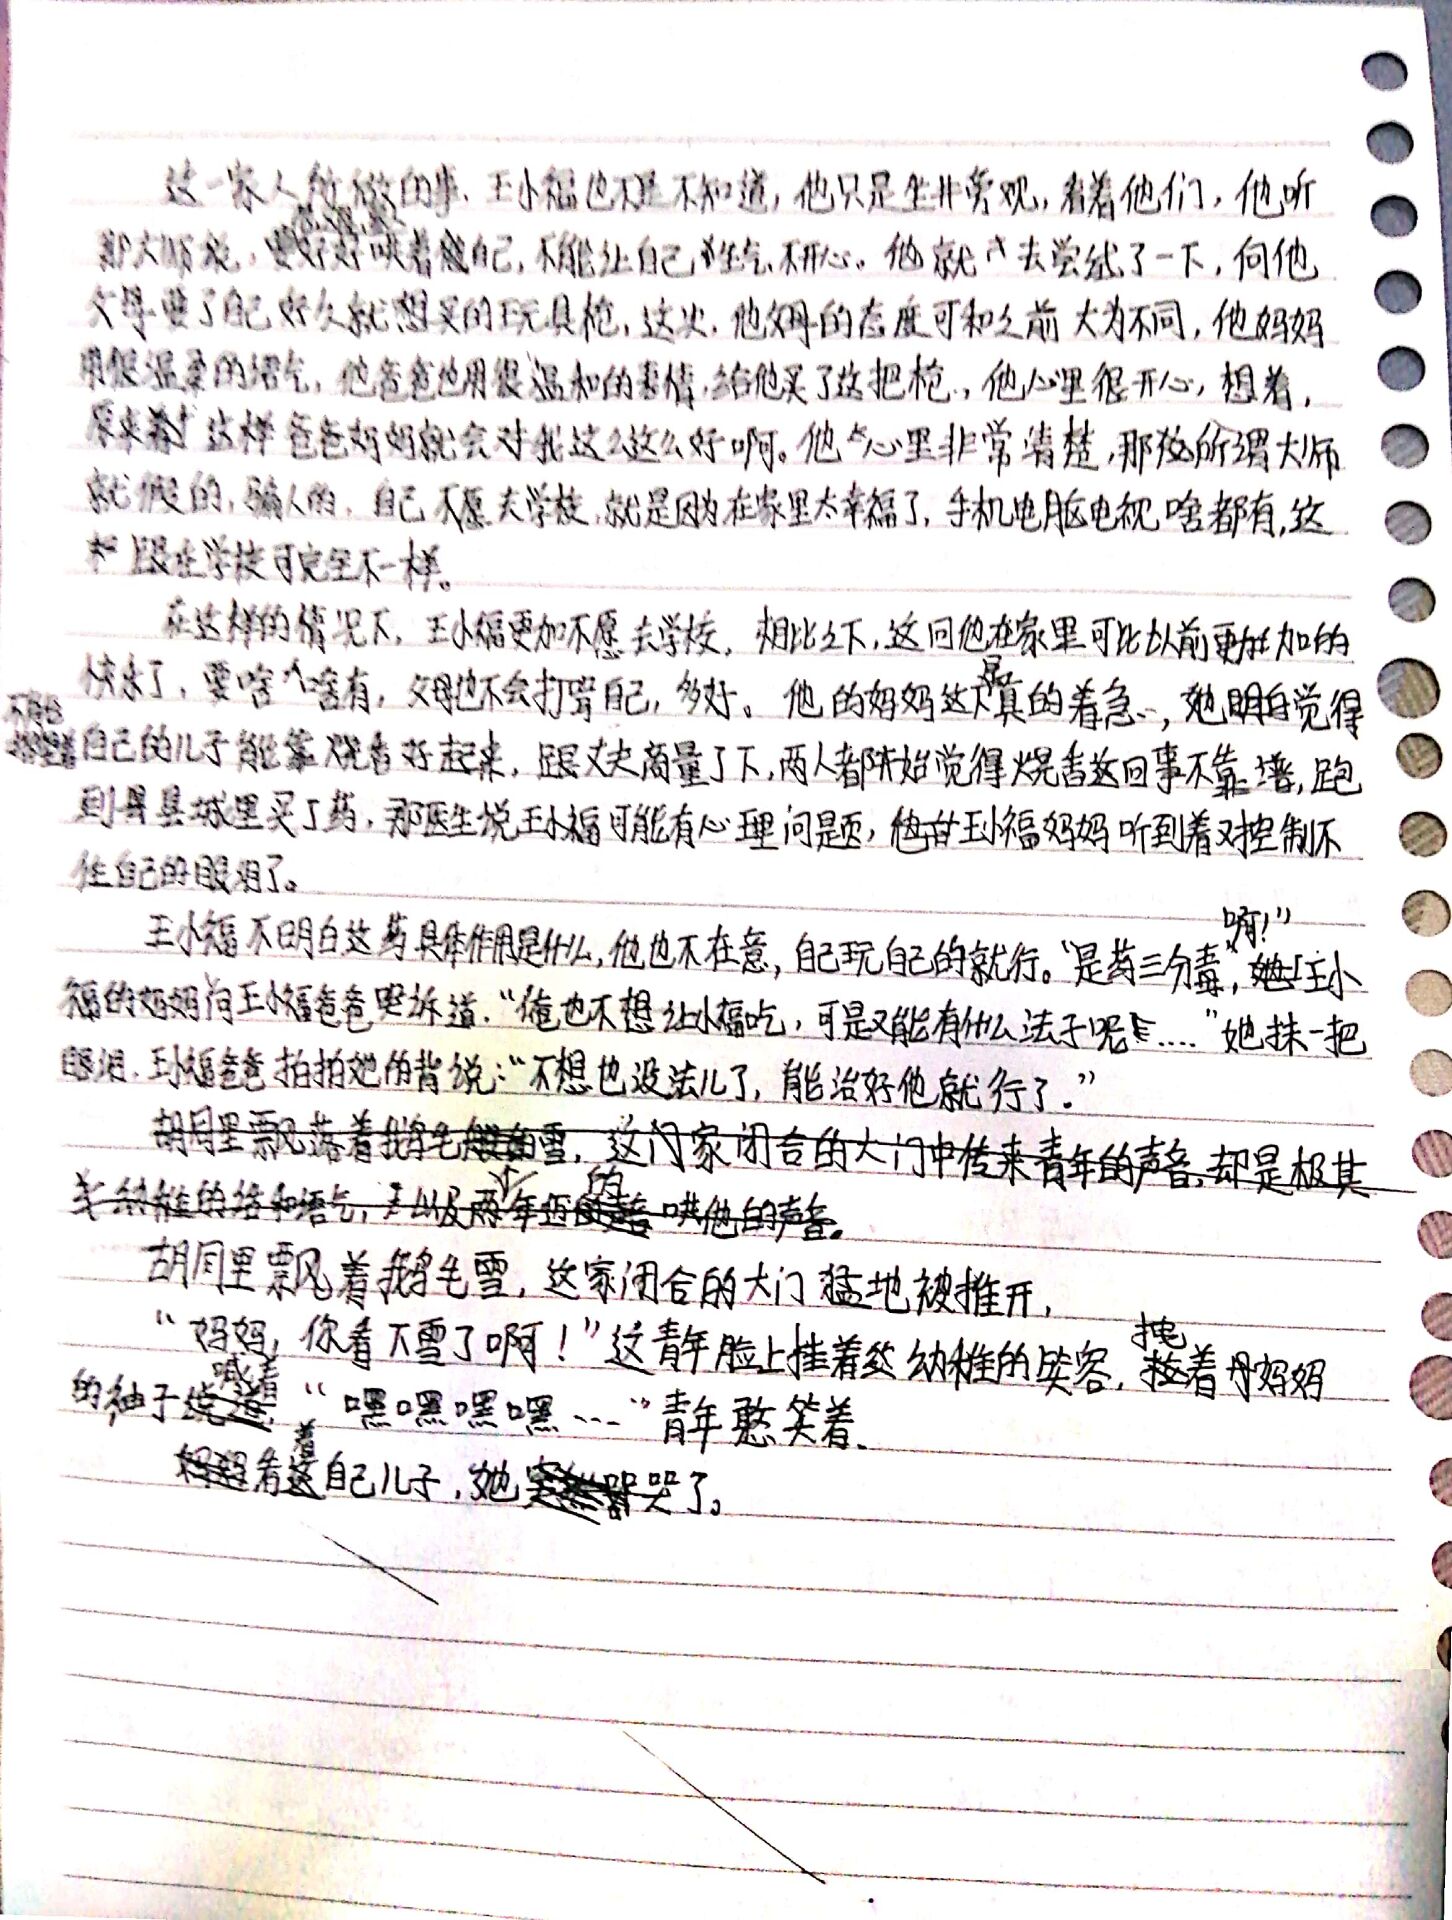 这一家人所做的事，王小福也不是不知道，他只是坐井旁观，看着他们，他听
那大师说，要好好哄着自己，不能让自己生气不开心。他就去尝试了一下，向他
父母要了自己好久就想买的玩具枪，这次，他父母的态度可和之前大为不同，他妈妈
用很温柔的语气，他爸爸也用很温和的表情，给他买了这把枪，他心里很开心，想着，
原来 这样爸爸妈妈就会对我这么这么好啊。他心里非常清楚，那 所谓大师
就假的，骗人的，自己不愿去学校，就是因为在家里太幸福了，手机电脑电视啥都有，这
跟在学校可完全不一样。
在这样的情况下，王小福更加不愿去学校，相比之下，这回他在家里可比以前更加的
快乐了，要啥啥有，父母也不会打骂自己，多好。他的妈妈这下是真的着急，她明白觉得
不再指望着
自己的儿子能靠烧香好起来，跟丈夫商量了下，两人都开始觉得烧香这回事不靠谱，跑
到县城里买了药，那医生说王小福可能有心理问题，王小福妈妈听到着又控制不
住自己的眼泪了。
王小福不明白这药具体作用是什么，他也不在意，自己玩自己的就行。“是药三分毒啊！”，王小
福的妈妈向王小福爸爸哭诉道，“俺也不想让小福吃，可是又能有什么法子呢……”她抹一把
眼泪，王小福爸爸拍拍她的背说：“不想也没法儿了，能治好他就行了。”
胡同里飘落着鹅毛 雪，这门家闭合的大门中传来青年的声音，却是极其
幼稚的 语气，以及两 年迈的 哄他的声音。
胡同里飘着鹅毛雪，这家闭合的大门猛地被推开，
“妈妈，你看下雪了啊！”这青年脸上挂着 幼稚的笑容，拽着 妈妈
的袖子喊着“嘿嘿嘿嘿……”青年憨笑着。
妈妈看着自己儿子，她 哭了。